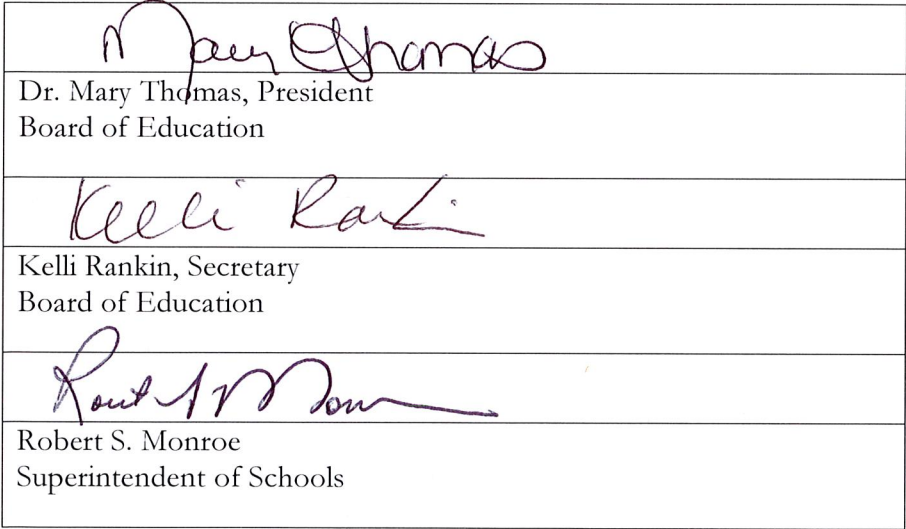 Mary Thomas
Dr. Mary Thomas, President
Board of Education
Kelli Rankin
Kelli Rankin, Secretary
Board of Education
Robert S Monroe
Robert S. Monroe
Superintendent of Schools